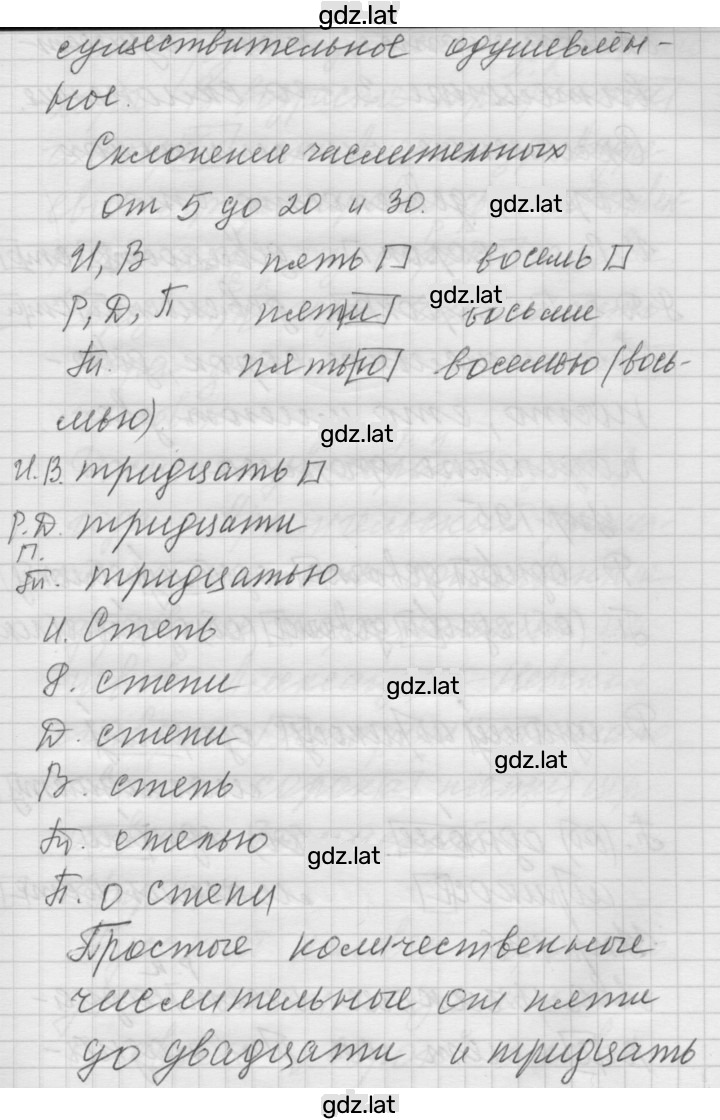 gdz.lat
существительное одушевлён-
ное.
Склонении числительных
от 5 до 20 и 30.
gdz.lat
И, В пять восемь
Р, Д, П пяти восьми
gdz.lat
Тп. пятью восемью (вось-
мью)
gdz.lat
И.В. тридцать
Р.Д. тридцати
П.
Тп. тридцатью
И. Степь
Р. степи
gdz.lat
Д. степи
gdz.lat
В. степь
Тп. степью
gdz.lat
П. о степи
Простые количественные
числительные от пяти
до двадцати и тридцать
gdz.lat